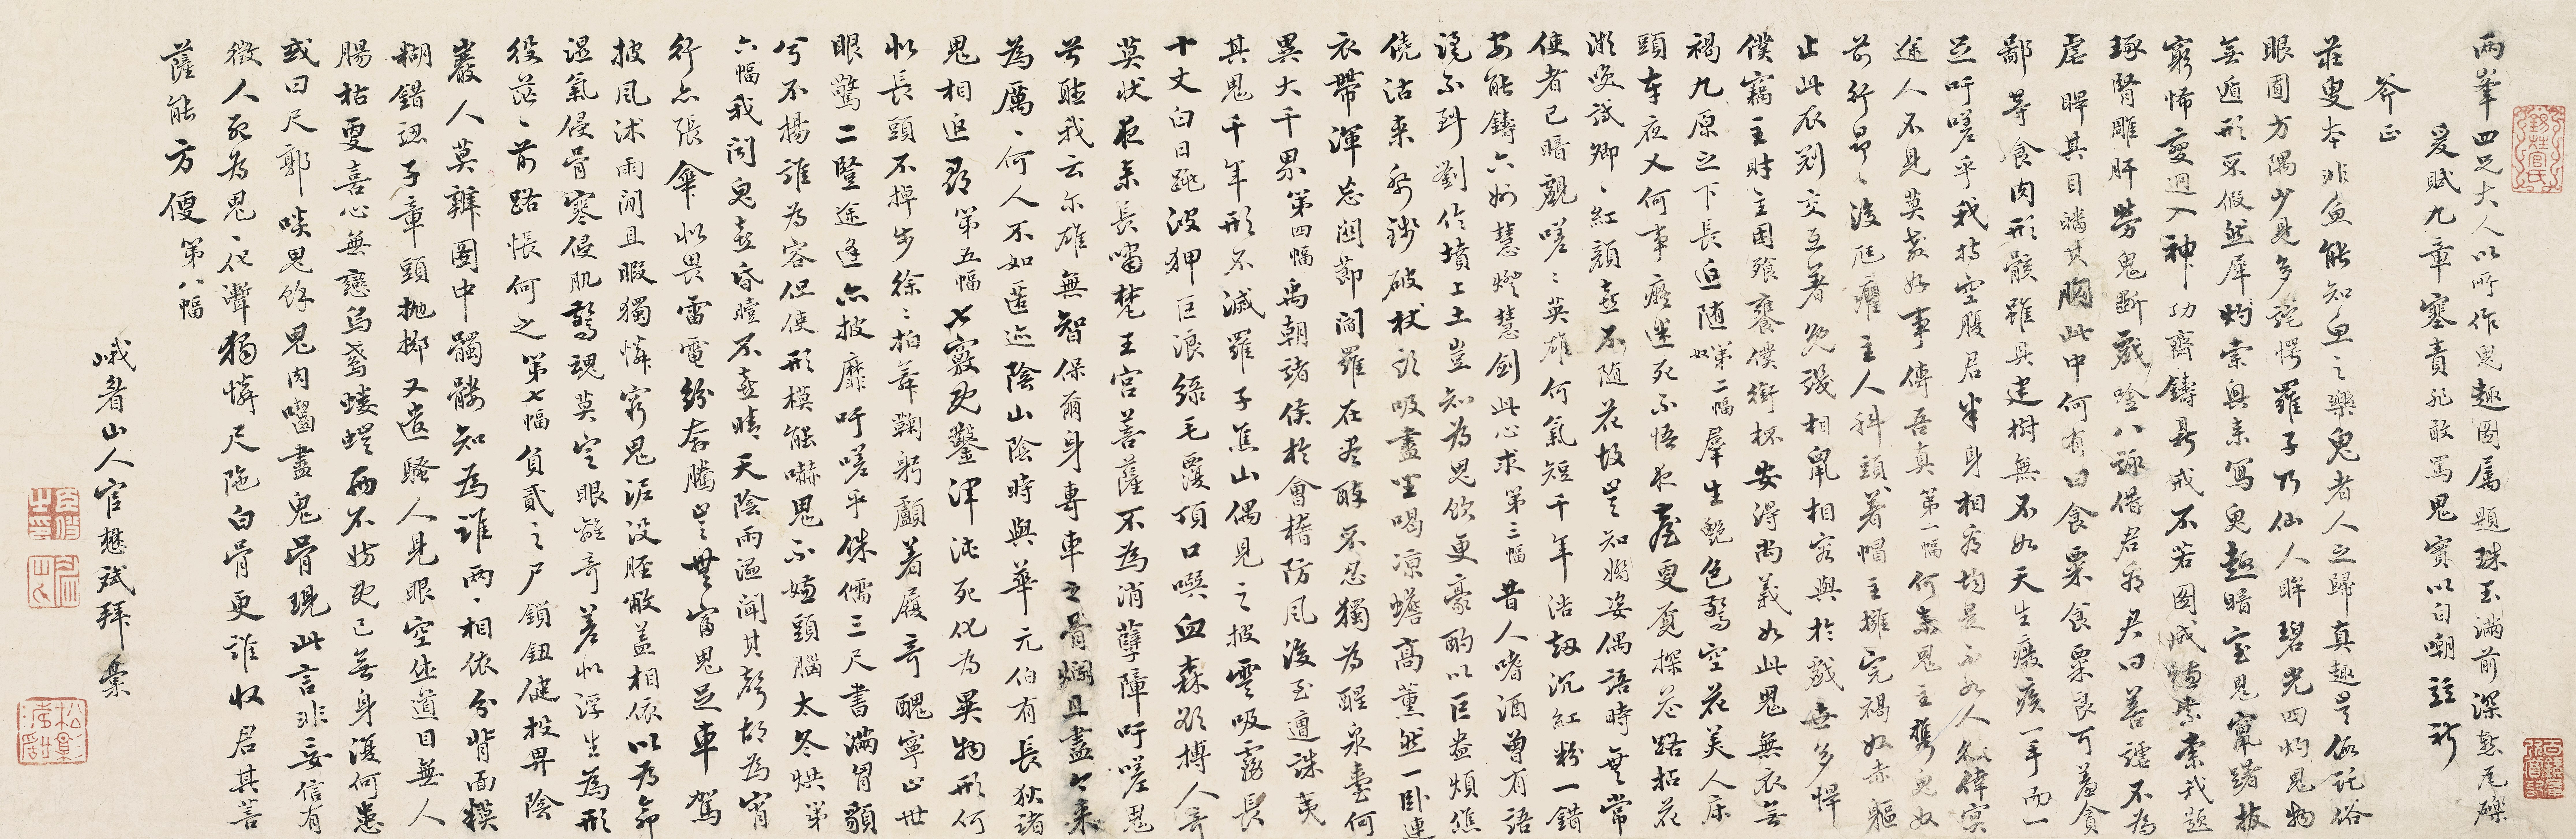 兩峯四兄大人以所作鬼趣圖屬題珠玉滿前深慙瓦礫
爰賦九章塞責非敢罵鬼實以自嘲并祈
斧正
莊叟本非魚能知魚之樂鬼者人之歸真趣是所託俗
眼囿方隅少見多詫愕羅子乃仙人眸碧光四灼鬼物
無遁形不假然犀灼索輿來寫鬼趣暗室鬼竄躇拔
窮怖變迥入神功齊鑄鼎戒不若圖成索我題
琢腎雕肝勞鬼斲戲唫八詠借君利君曰善謔不為
虐睅其目皤其胸此中何有曰食粟食粟良可羞貪
鄙等食肉形骸雖具建樹無不如天生癈疾一手而一
足吁嗟乎我持空腹君半身相看均是不如人 偉寞
途人不見莫教好事傳吾真第一幅何來鬼主攜鬼奴
前行昂昂後尪癯主人科頭著帽主擁完褐奴赤軀
止此衣剡交互著免殘相鼠相容與於戲世多悍
僕竊主財主困飱饔僕銜杯安得尚義如此鬼無衣無
褐九原之下長追随奴第二幅羣生艷色驚空花美人床
頭車夜叉何事癡迷死不悟夜臺更覓探花路招花
漱喚試卿卿紅顏在不随花故是知嬌姿偶語時無常
使者已暗觀嗟嗟英雄何氣短千年浩劫沉紅粉一錯
安能鑄六州慧燈慧劍此心求第三幅昔人嗜酒曾有語
澆不到劉伶墳上土豈知為鬼飲更豪酌以巨盎煩僬
僥沽來紗鏹破杖頭吸盡罡喝凉蟾高薰然一卧連
衣帶渾忘關節閻羅在衆醉不忍獨為醒泉臺何
異大千界第四幅禹朝諸侯於會稽防風後至遭誅夷
其鬼千年形不滅羅子焦山偶見之披雲吸霧長
十丈白日跳波狎巨浪綠毛覆頂口噀血森欲搏人奇
莫狀夜來長嘯梵王宮菩薩不為消孽障吁嗟鬼
兮聽我云尔雄無智保爾身專車之骨爛且盡今來
為厲厲何人不如匿迹陰山陰時與華元伯有長狄諸
鬼相追尋第五幅七竅既鑿渾沌死化為異物形何
似長頭不掉步徐徐拍舞鞠躬顱着屐奇醜寧止世
眼驚二豎途逢亦披靡吁嗟乎侏儒三尺書滿胷顙
兮不揚誰為容但使形模能嚇鬼不嫌頭腦太冬烘第
六幅我聞鬼喜昏曀不喜晴天陰雨溼聞其聲胡為宵
行亦張傘似畏雷電紛奔騰豈無富鬼足車駕
披風沐雨閒且暇獨憐窮鬼泥没脛敝蓋相依以為命
溼氣侵骨寒侵肌驚魂莫定眼離奇差似浮生為形
役茫茫前路悵何之第七幅負貳之尸鎖鈕健投畀陰
巖人莫辨圖中髑髏知為誰兩兩相依分背面糢
糊錯認子章頭拋擲又遭騷人見眼空佳道目無人
腸枯更喜心無戀烏鳶螻蟻兩不妨既已無身復何患
或曰尺郭啖鬼飲鬼肉囓盡鬼骨現此言非妄信有
徵人死為鬼鬼化聻獨憐尺陁白骨更誰收君其菩
薩能方便第八幅
峨眉山人官懋斌拜稾